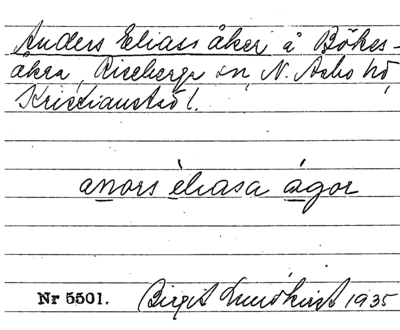 Anders Eliass åker å Bökes-
åkra, Riseberga sn, N. Åsbo hd,
Kristianstad l.
anors èliasa ágor
Nr 5501. Birgit Lundkvist 1935